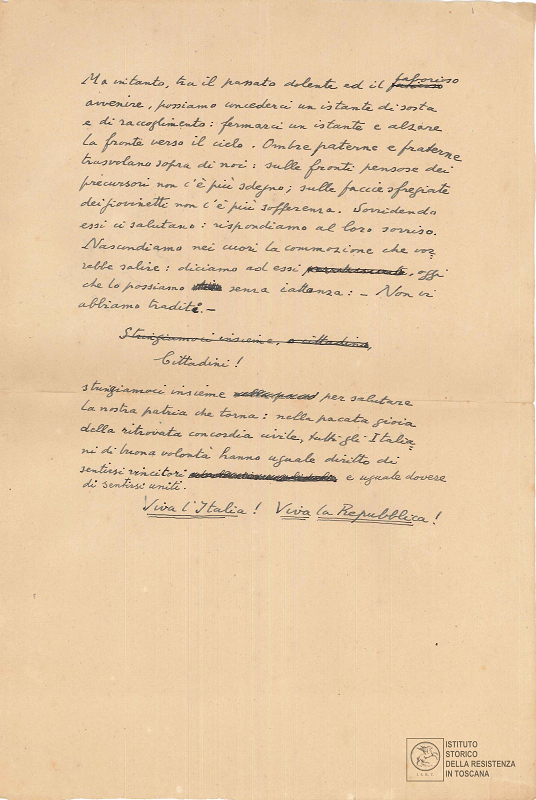 Ma intanto, tra il passato dolente ed il faticoso
avvenire, possiamo concederci un istante di sosta
e di raccoglimento: fermarci un istante e alzare
la fronte verso il cielo. Ombre paterne e fraterne
trasvolano sopra di noi: sulle fronti pensose dei
precursori non c'è più sdegno; sulle faccie sfregiate
dei giovinetti non c'è più sofferenza. Sorridendo
essi ci salutano: rispondiamo al loro sorriso.
Nascondiamo nei cuori la commozione che vor=
rebbe salire: diciamo ad essi, oggi
che lo possiamo senza iattanza: - Non vi
abbiamo traditi. -
Stringiamoci insieme, o cittadini,
Cittadini!
stringiamoci insieme nella pace per salutare
la nostra patria che torna: nella pacata gioia
della ritrovata concordia civile, tutti gli Italia=
ni di buona volontà hanno uguale diritto di
sentirsi vincitori e uguale dovere
di sentirsi uniti.
Viva l'Italia! Viva la Repubblica!
ISTITUTO
STORICO
DELLA RESISTENZA
IN TOSCANA